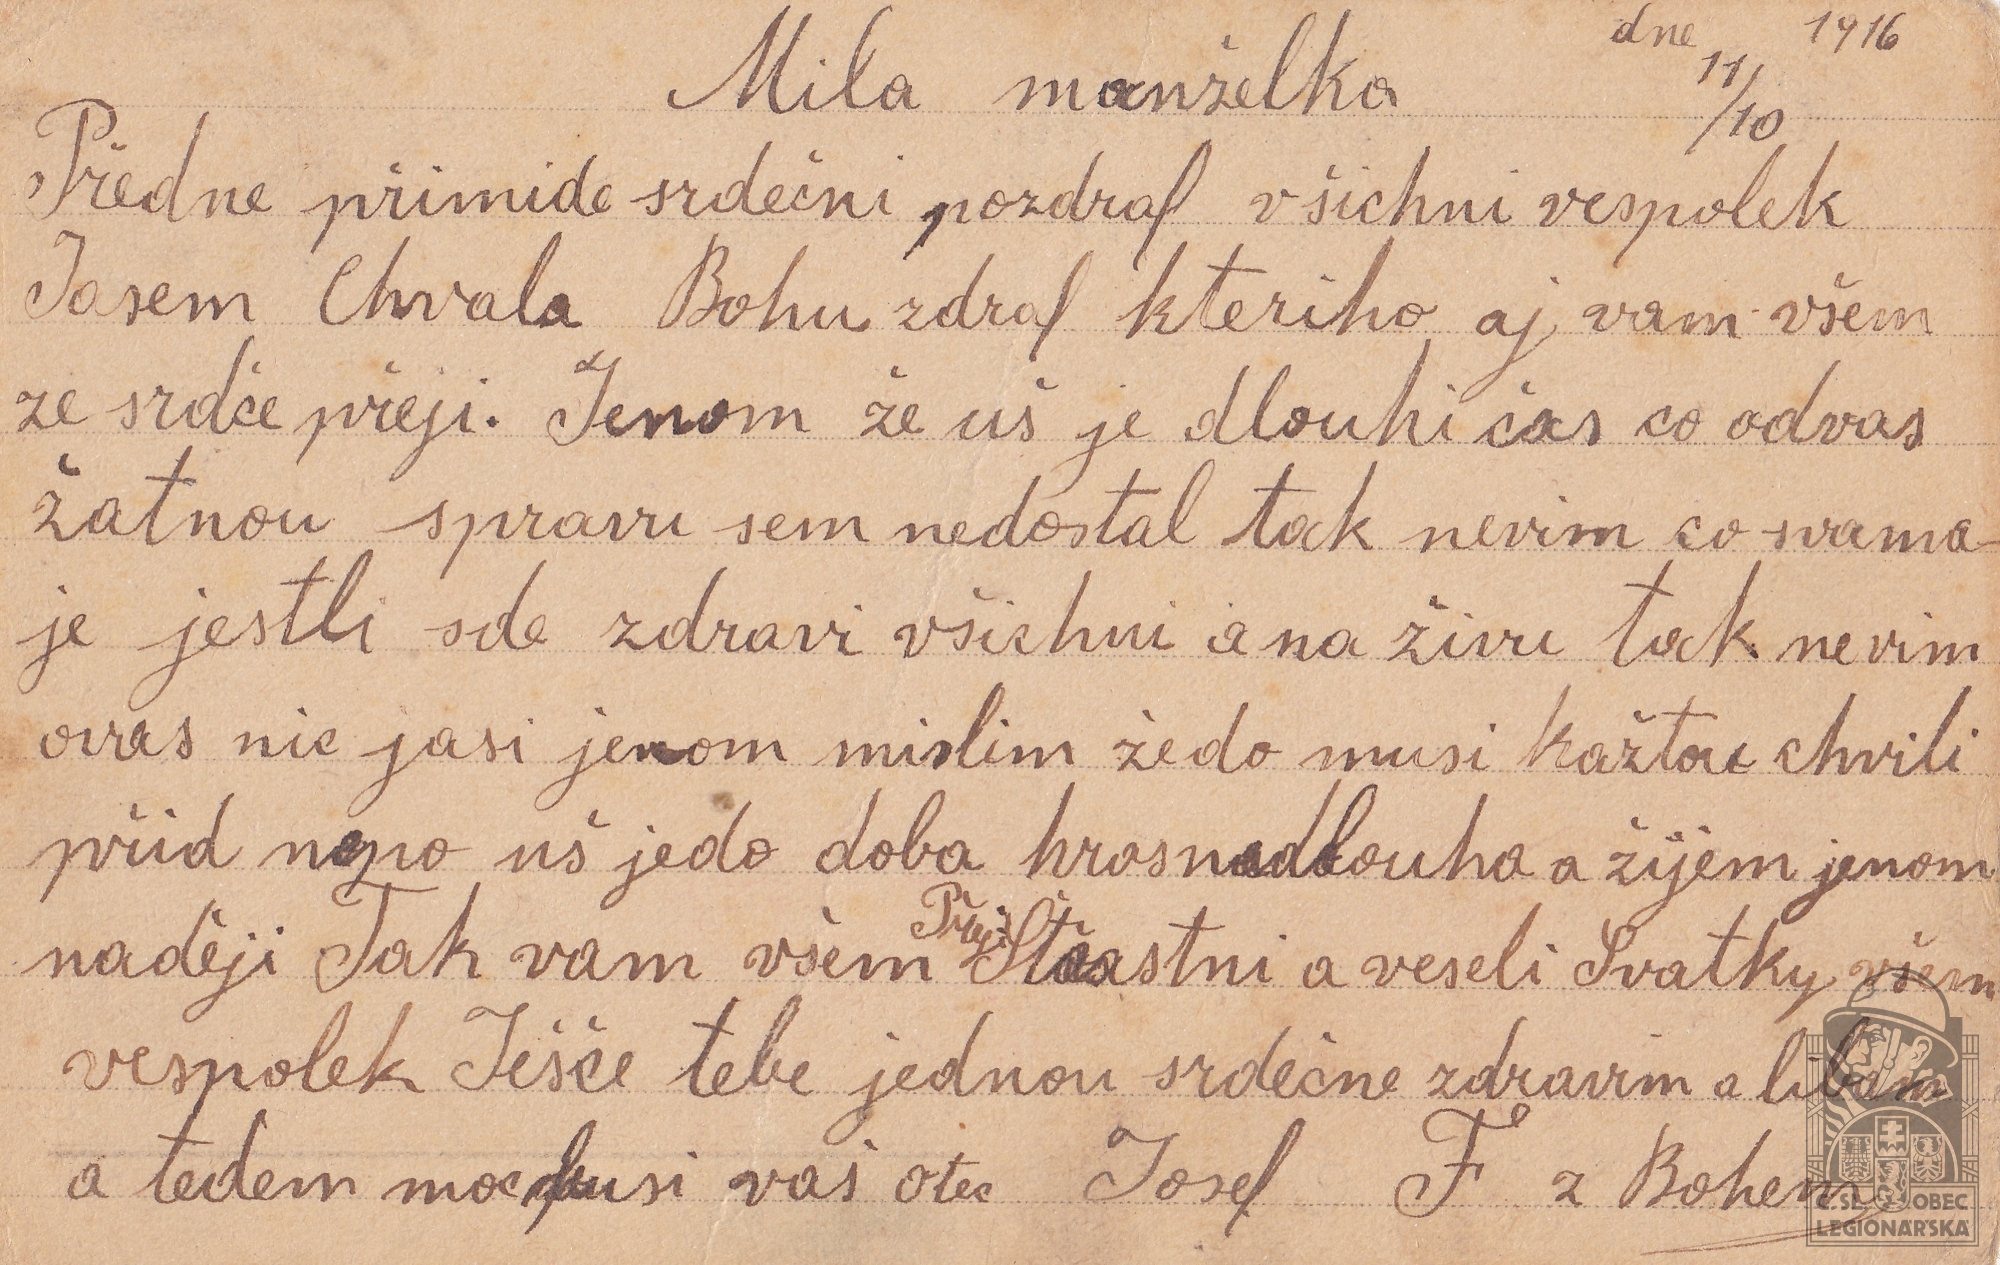 dne 11/10 1916
Mila manželka
Předne přimide srdečni pozdraf všichni vespolek
Jasem Chvala Bohu zdraf kteriho aj vam všem
ze srdce přeji. Jenom že uš je dlouhi čas co odvas
žatnou spravu sem nedostal tak nevim co svama
je jestli sde zdravi všichni a na živu tak nevim
ovas nic jasi jenom mislim žedo musi kažtou chvili
přiid nepo uš jedo doba hrosnadlouha a žijem jenom
naději Tak vam všem Přeji Štaastni a veseli Svatky všem
vespolek Ješče tebe jednou srdečne zdravim a libam
a tedem moc pusi vaš otec Josef F z Bohem
Č. SL. OBEC
LEGIONÁŘSKÁ